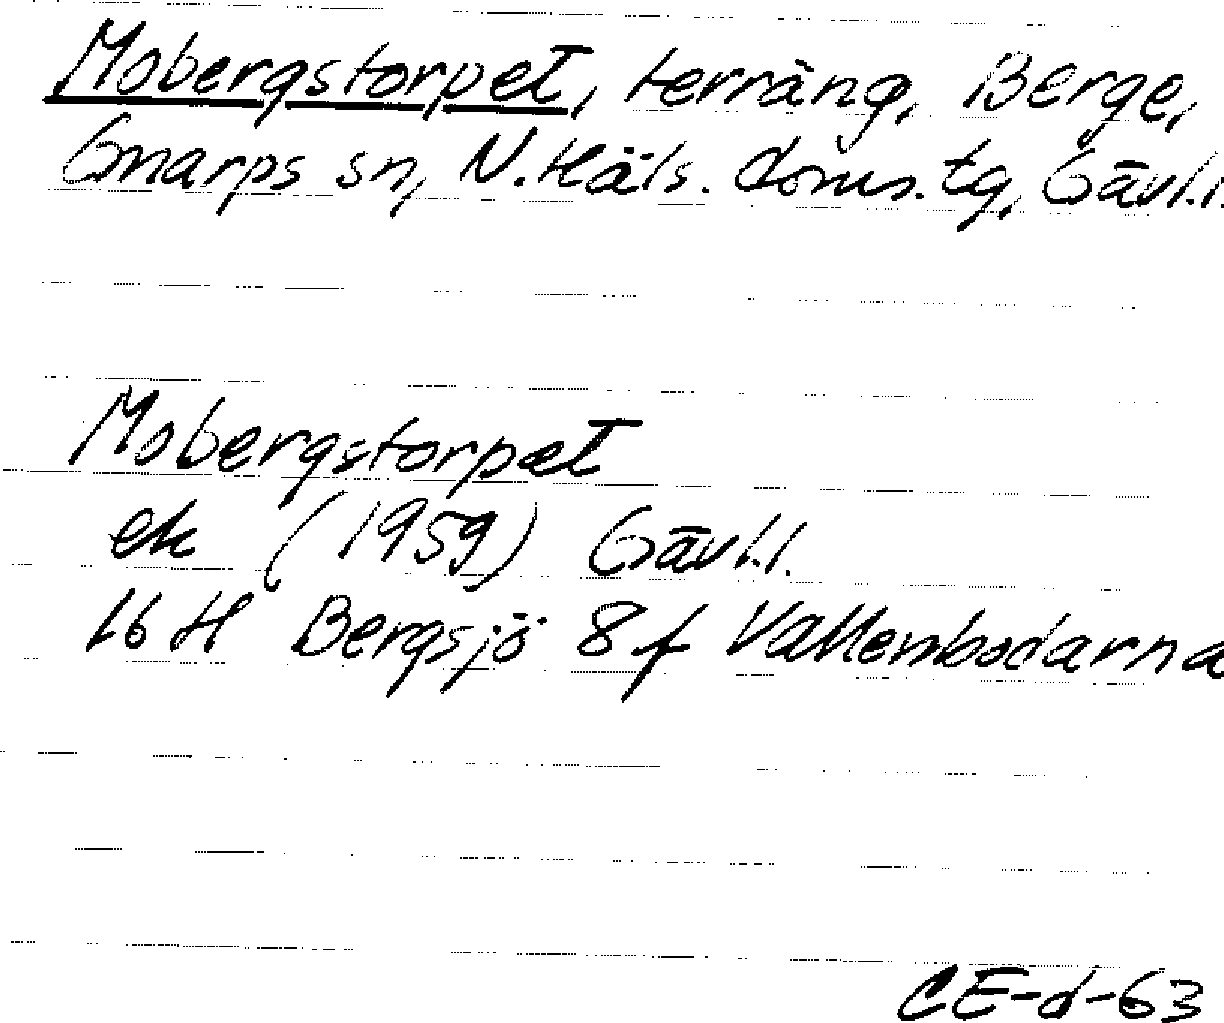 Mobergstorpet, terräng, Berge,
Gnarps sn, N. Häls. doms. tg, Gävl.l.
Mobergstorpet
ek (1959) Gävl.l.
16 H Bergsjö 8 f Vallenbodarna
CE-d-63